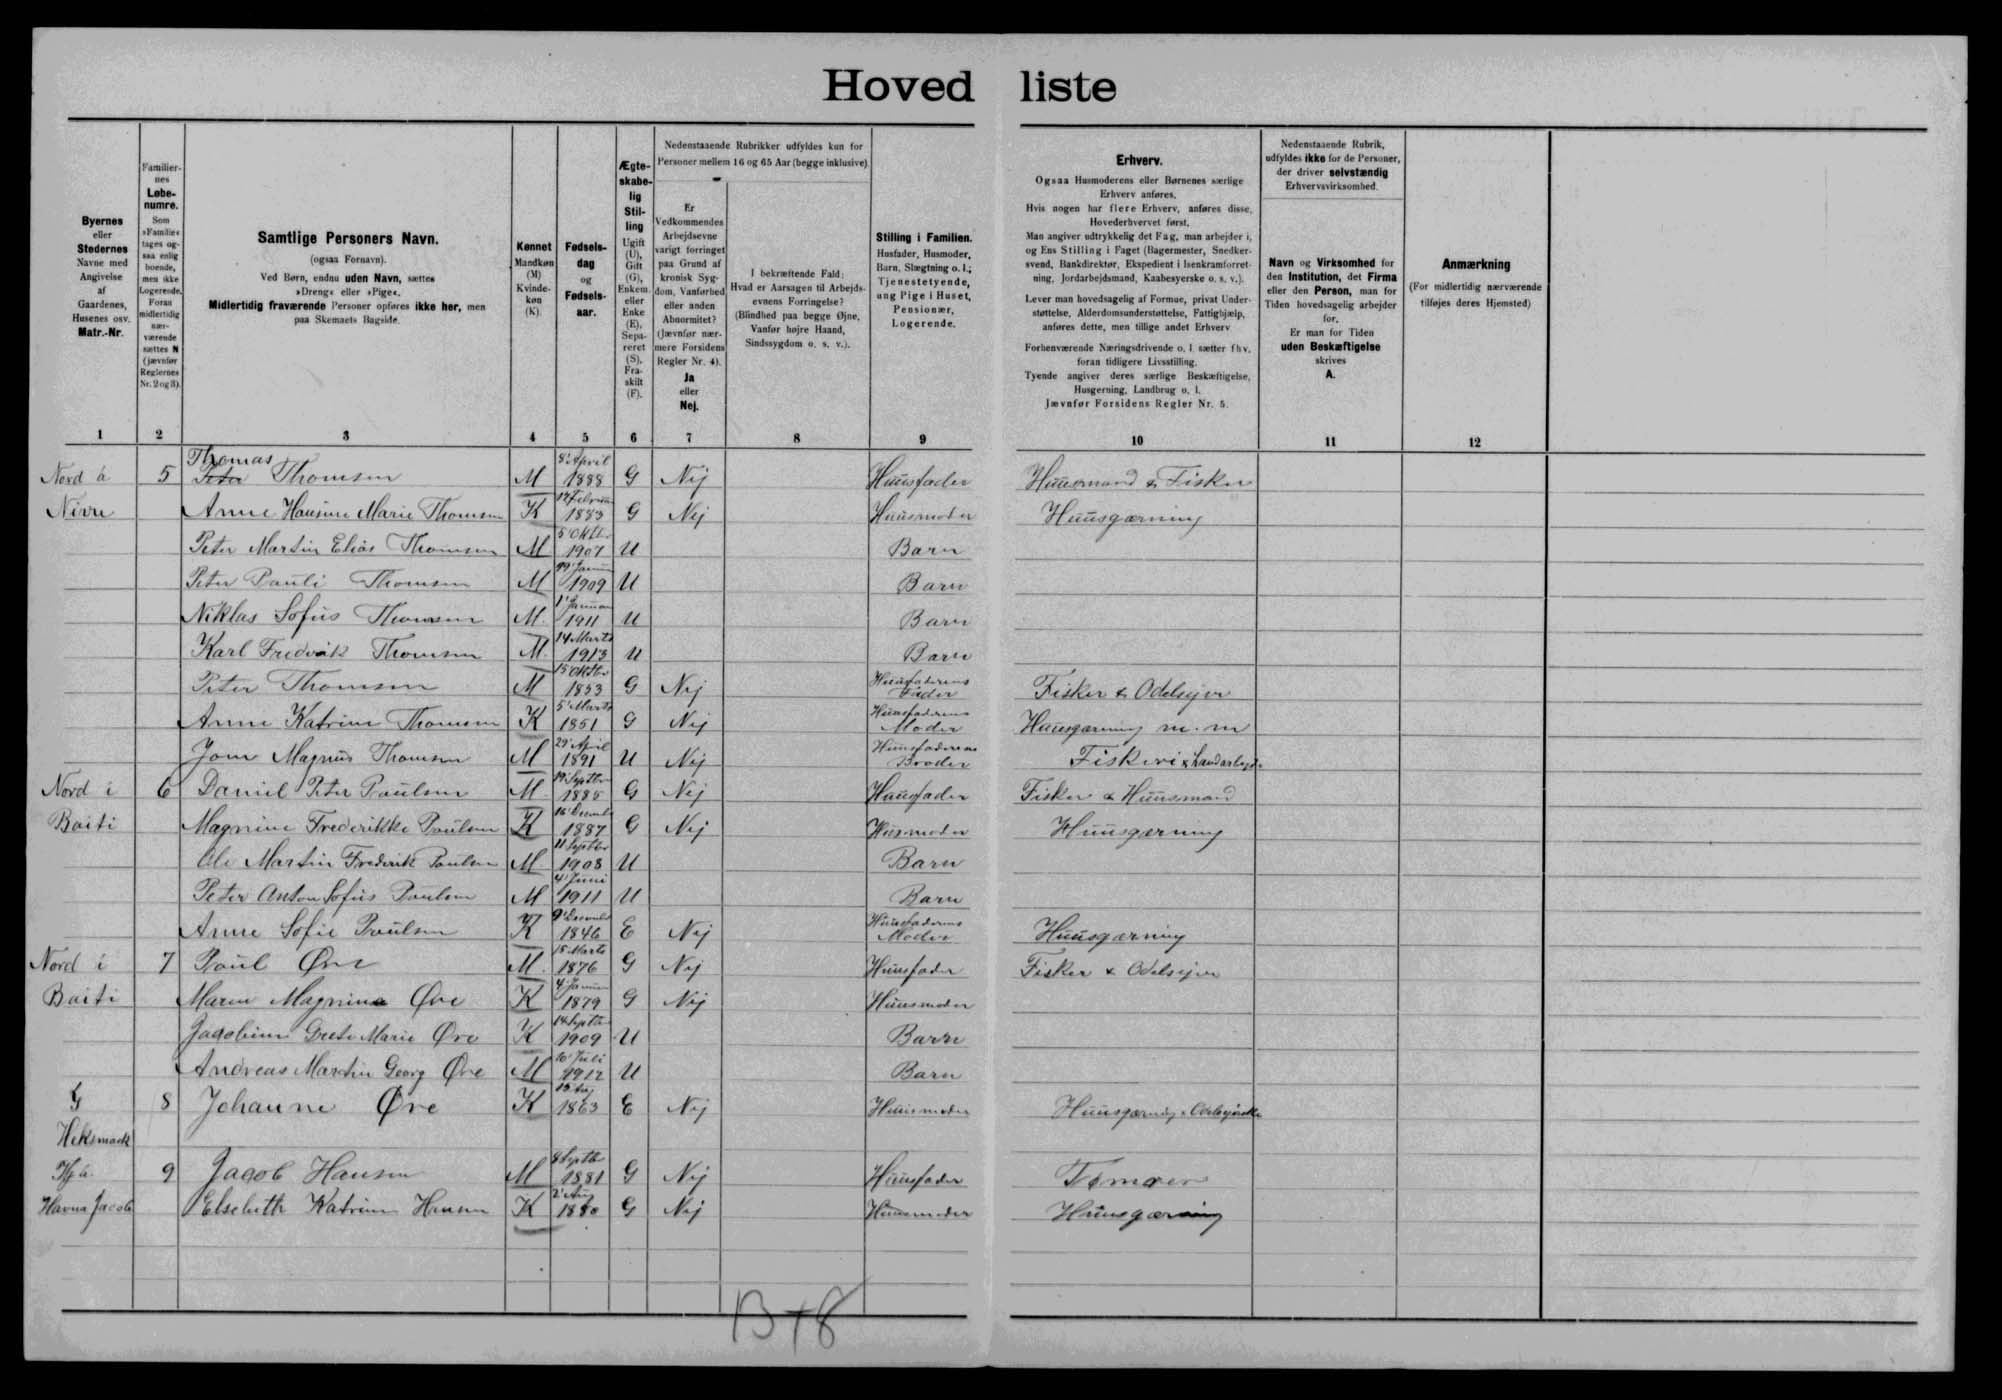 Hovedliste
Byernes eller Stedernes Navne med Angivelse af Gaardenes, Husenes osv. Matr.-Nr.
Familiernes Løbenumre. Som »Familie« tages ogsaa enlig boende, men ikke Logerende. Foran midlertidig nærværende sættes N (jævnfør Reglernes Nr. 2 og 3).
Samtlige Personers Navn. (ogsaa Fornavn). Ved Børn, endnu uden Navn, sættes »Dreng« eller »Pige«. Midlertidig fraværende Personer opføres ikke her, men paa Skemaets Bagside.
Kønnet Mandkøn (M) Kvindekøn (K).
Fødselsdag og Fødselsaar.
Ægteskabelig Stilling Ugift (U), Gift (G), Enkem. eller Enke (E), Separeret (S), Fraskilt (F).
Nedenstaaende Rubrikker udfyldes kun for Personer mellem 16 og 65 Aar (begge inklusive)
Er Vedkommendes Arbejdsevne varigt forringet paa Grund af kronisk Sygdom, Vanførhed eller anden Abnormitet? (Jævnfør nærmere Forsidens Regler Nr. 4). Ja eller Nej.
I bekræftende Fald: Hvad er Aarsagen til Arbejdsevnens Forringelse? (Blindhed paa begge Øjne, Vanfør højre Haand, Sindssygdom o. s. v.).
Stilling i Familien. Husfader, Husmoder, Barn, Slægtning o. l.; Tjenestetyende, ung Pige i Huset, Pensionær, Logerende.
Erhverv.
Ogsaa Husmoderens eller Børnenes særlige Erhverv anføres.
Hvis nogen har flere Erhverv, anføres disse, Hovederhvervet først.
Man angiver udtrykkelig det Fag, man arbejder i, og Ens Stilling i Faget (Bagermester, Snedkersvend, Bankdirektør, Ekspedient i Isenkramforretning, Jordarbejdsmand, Kaabesyerske o. s. v.).
Lever man hovedsagelig af Formue, privat Understøttelse, Alderdomsunderstøttelse, Fattighjælp, anføres dette, men tillige andet Erhverv
Forhenværende Næringsdrivende o. l. sætter fhv. foran tidligere Livsstilling.
Tyende angiver deres særlige Beskæftigelse, Husgerning, Landbrug o. l.
Jævnfør Forsidens Regler Nr. 5.
Nedenstaaende Rubrik, udfyldes ikke for de Personer, der driver selvstændig Erhvervsvirksomhed.
Navn og Virksomhed for den Institution, det Firma eller den Person, man for Tiden hovedsagelig arbejder for. Er man for Tiden uden Beskæftigelse skrives A.
Anmærkning (For midlertidig nærværende tilføjes deres Hjemsted)
1 2 3 4 5 6 7 8 9 10 11 12
Nord á 5 Thomas Peter Thomsen M 8' April 1888 G Nej Huusfader Huusmand & Fisker
Anne Hansine Marie Thomsen K 1883 G Nej Huusmoder Huusgærning
Peter Martin Elias Thomsen M 5' Oktbr 1907 U Barn
Peter Pauli Thomsen M 1909 U Barn
Niklas Sofus Thomsen M. 1' Januar 1911 U Barn
Karl Fredrik Thomsen M. 14 Marts 1913 U Barn
Peter Thomsen M 15 Oktbr 1853 G Nej Huusfaderens Fader Fisker & Odelsejer
Anne Katrine Thomsen K 5' Marts 1851 G Nej Huusfaderens Moder Huusgærning m. m
Magnus Thomsen M 29' April 1891 U Nej Huusfaderens Broder Fiskeri & Landarbejde
Nord i 6 Daniel Peter Poulsen M. Septbr 1885 G Nej Huusfader Fisker & Huusmand
Baiti Magnine Frederikke Poulsen K 16' Decembr 1887 G Nej Husmoder Huusgærning
Ole Martin Fredrik Poulsen M. 11 Septbr 1908 U Barn
Peter Anton Sofus Poulsen M 4' Juni 1911 U Barn
Anne Sofie Poulsen K 9' Decembr 1846 E Nej Huusfaderens Moder Huusgærning
Nord i 7 Poul Øre M. 18 Marts 1876 G Nej Huusfader Fisker & Odelsejer
Baiti Maren Magnina Øre K 4' Januar 1879 G Nej Huusmoder
Jacobine Grete Marie Øre K 14 Septbr 1909 U Barn
Andreas Martin Georg Øre M 10' Juli 1912 U Barn
8 Johanne Øre K 15 Aug 1863 E Nej Huusmoder Huusgærning &
9 Jacob Hansen M 8 Septbr 1881 G Nej Huusfader Tømrer
Havna Jacob Elsebeth Katrine Hansen K 2' Aug 1880 G Nej Huusmoder Huusgærning
B+8